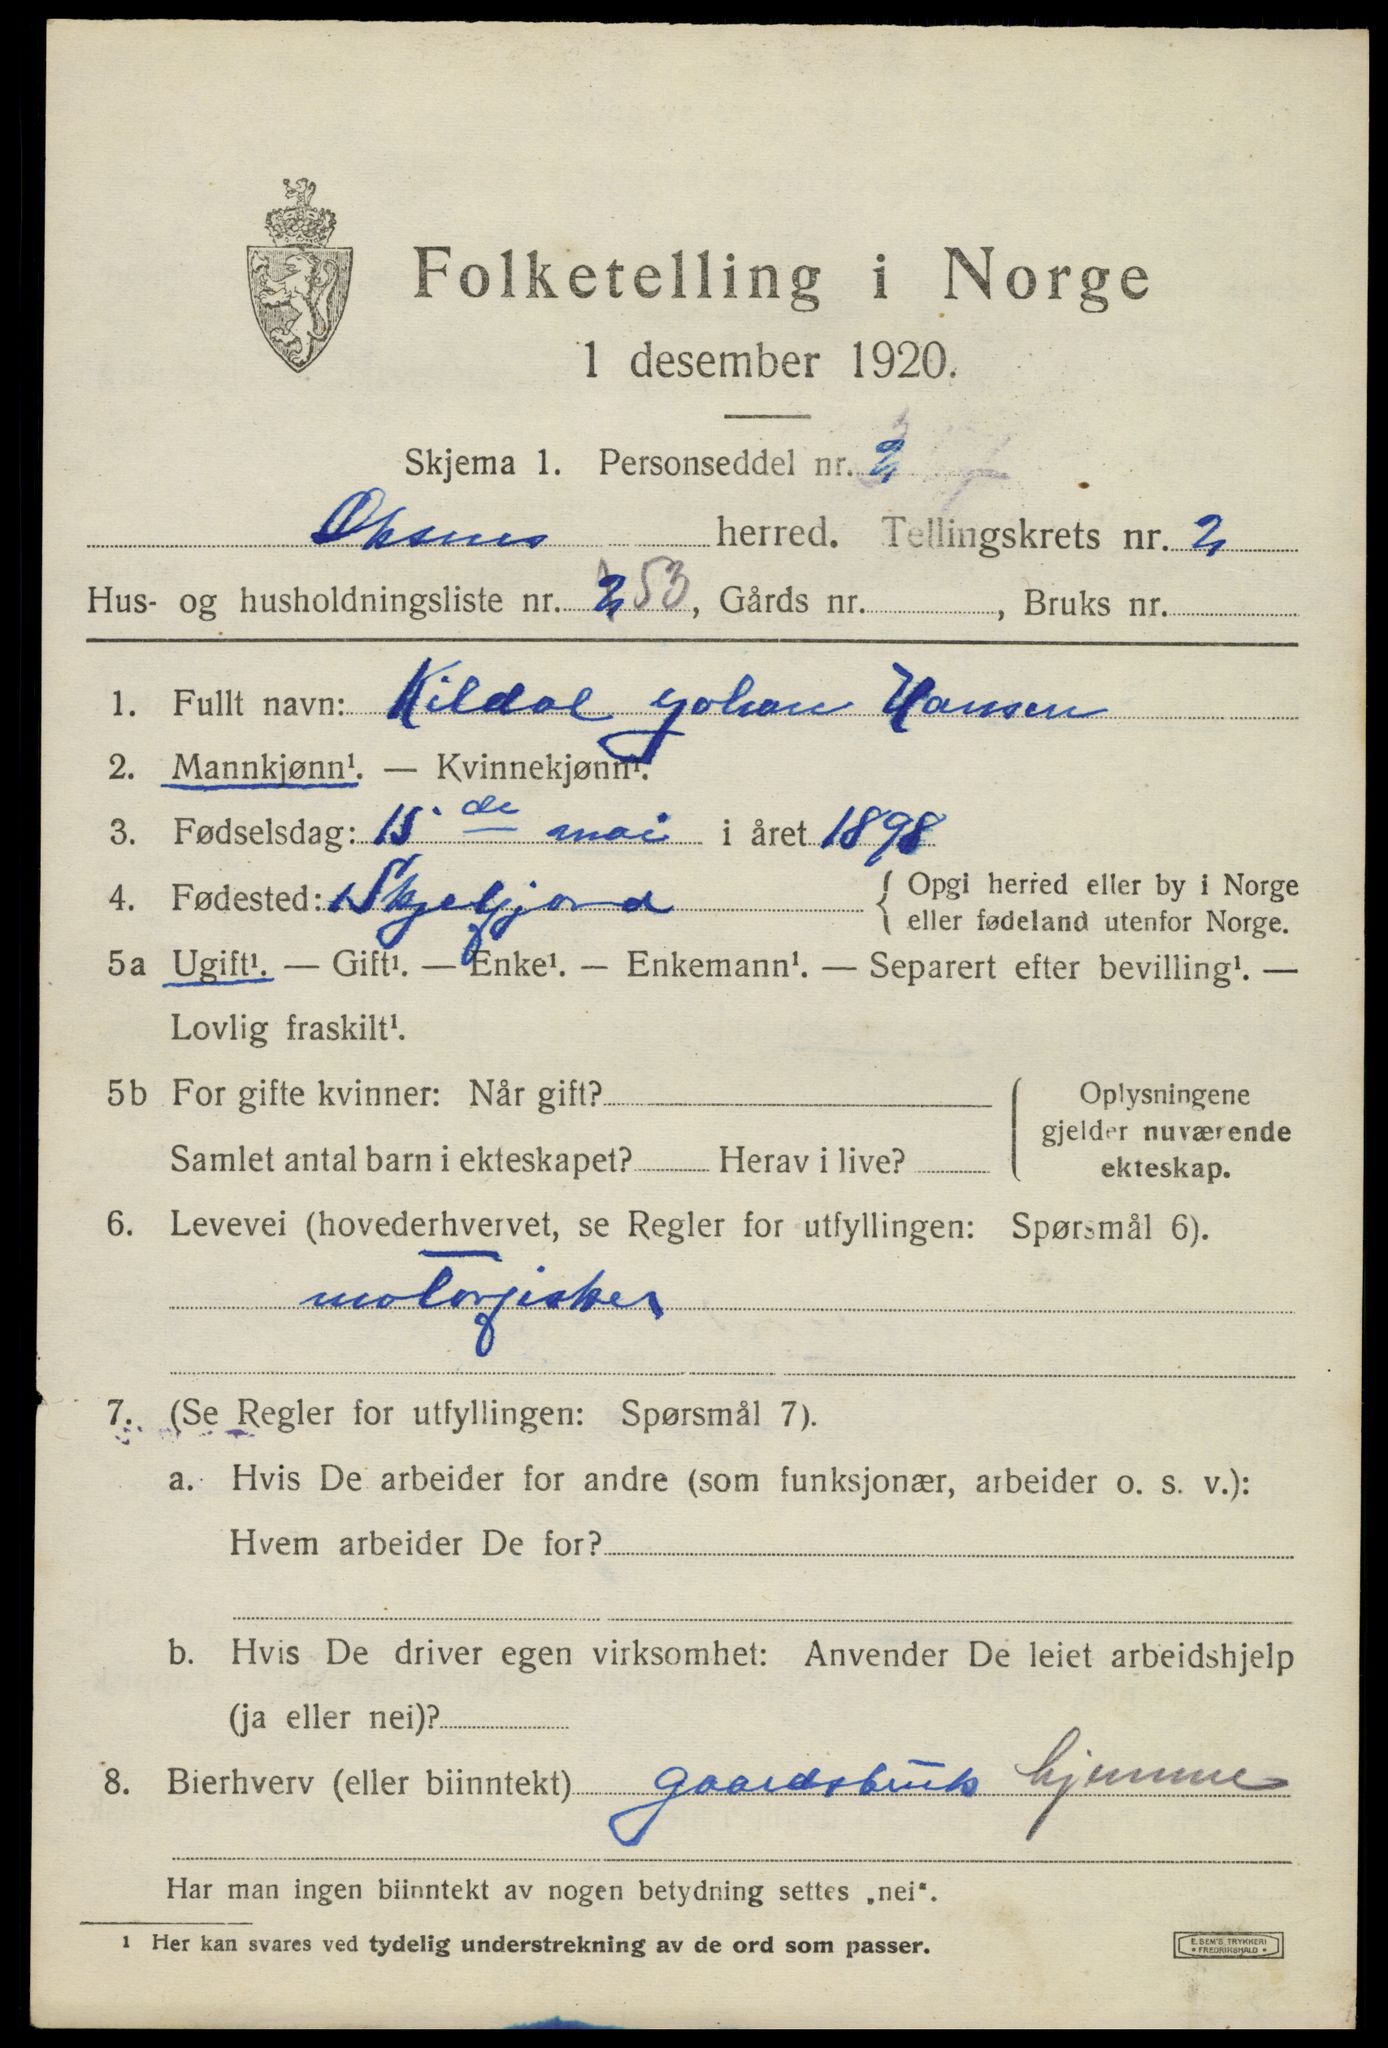 Folketelling i Norge
1 desember 1920.
Skjema 1. Personseddel nr. 2
Øksnes herred. Tellingskrets nr. 2
Hus- og husholdningsliste nr. 2 53, Gårds nr. , Bruks nr.
1. Fullt navn: Kildal Johan Hansen
2. Mannkjønn¹. — Kvinnekjønn¹.
3. Fødselsdag: 15de mai i året 1898
4. Fødested: Skjelfjord { Opgi herred eller by i Norge
eller fødeland utenfor Norge.
5a Ugift¹. — Gift¹. — Enke¹. — Enkemann¹. — Separert efter bevilling¹. —
Lovlig fraskilt¹.
5b For gifte kvinner: Når gift? { Oplysningene
gjelder nuværende
Samlet antal barn i ekteskapet? Herav i live? ekteskap.
6. Levevei (hovederhvervet, se Regler for utfyllingen: Spørsmål 6).
motorfisker
7. (Se Regler for utfyllingen: Spørsmål 7).
a. Hvis De arbeider for andre (som funksjonær, arbeider o. s. v.):
Hvem arbeider De for?
b. Hvis De driver egen virksomhet: Anvender De leiet arbeidshjelp
(ja eller nei)?
8. Bierhverv (eller biinntekt) gaardsbruk hjemme
Har man ingen biinntekt av nogen betydning settes „nei“.
¹ Her kan svares ved tydelig understrekning av de ord som passer.
E. SEM'S TRYKKERI
FREDRIKSHALD